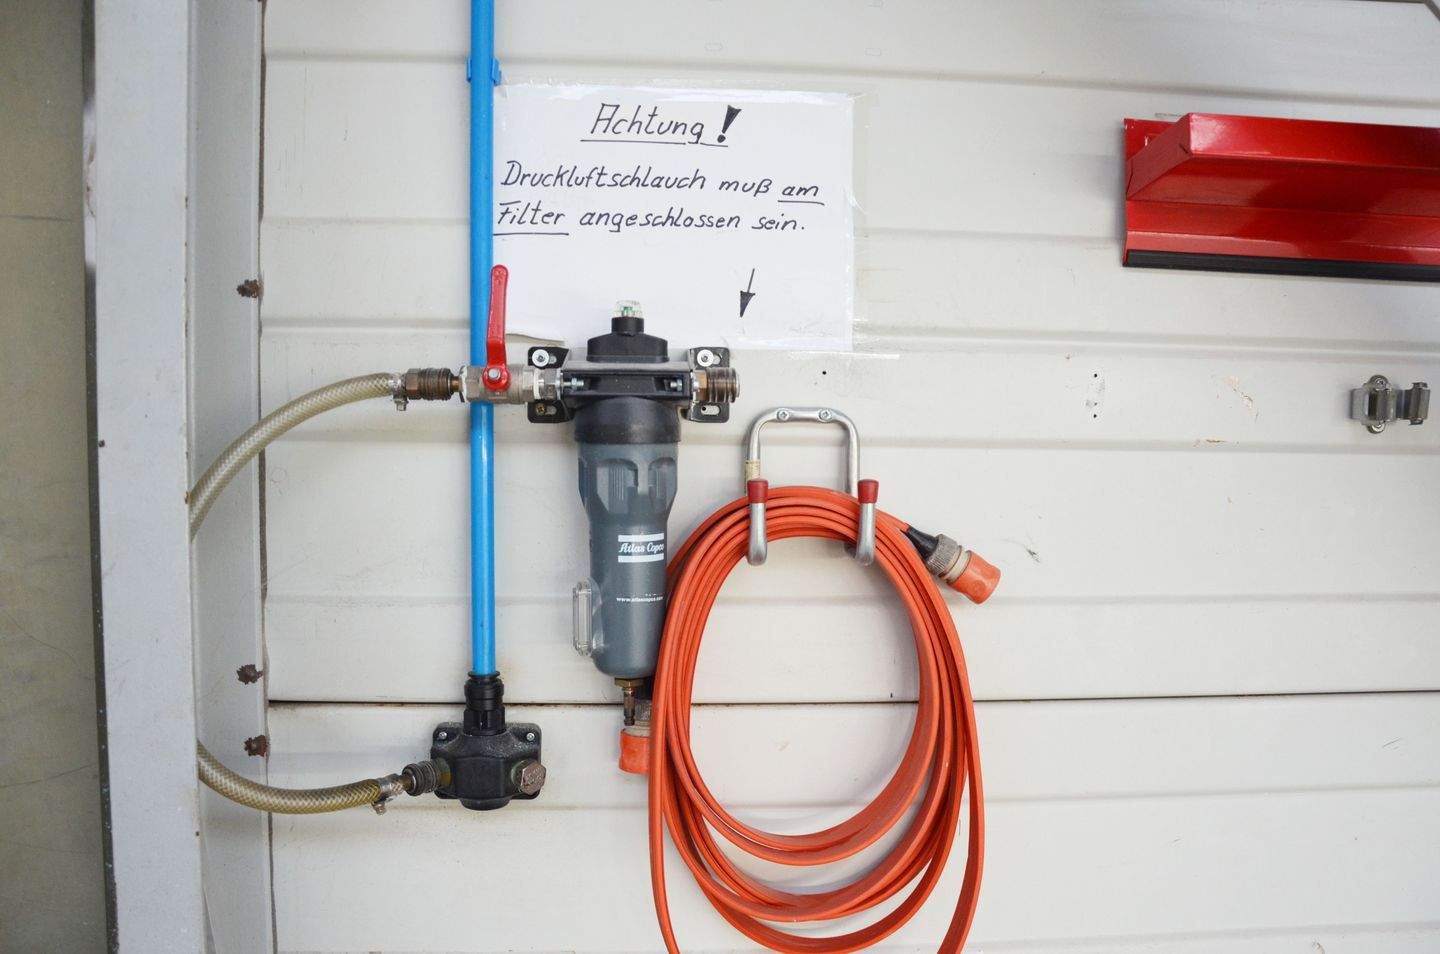 Achtung!
Druckluftschlauch muß am
Filter angeschlossen sein.
Atlas Copco
www.atlascopco.com